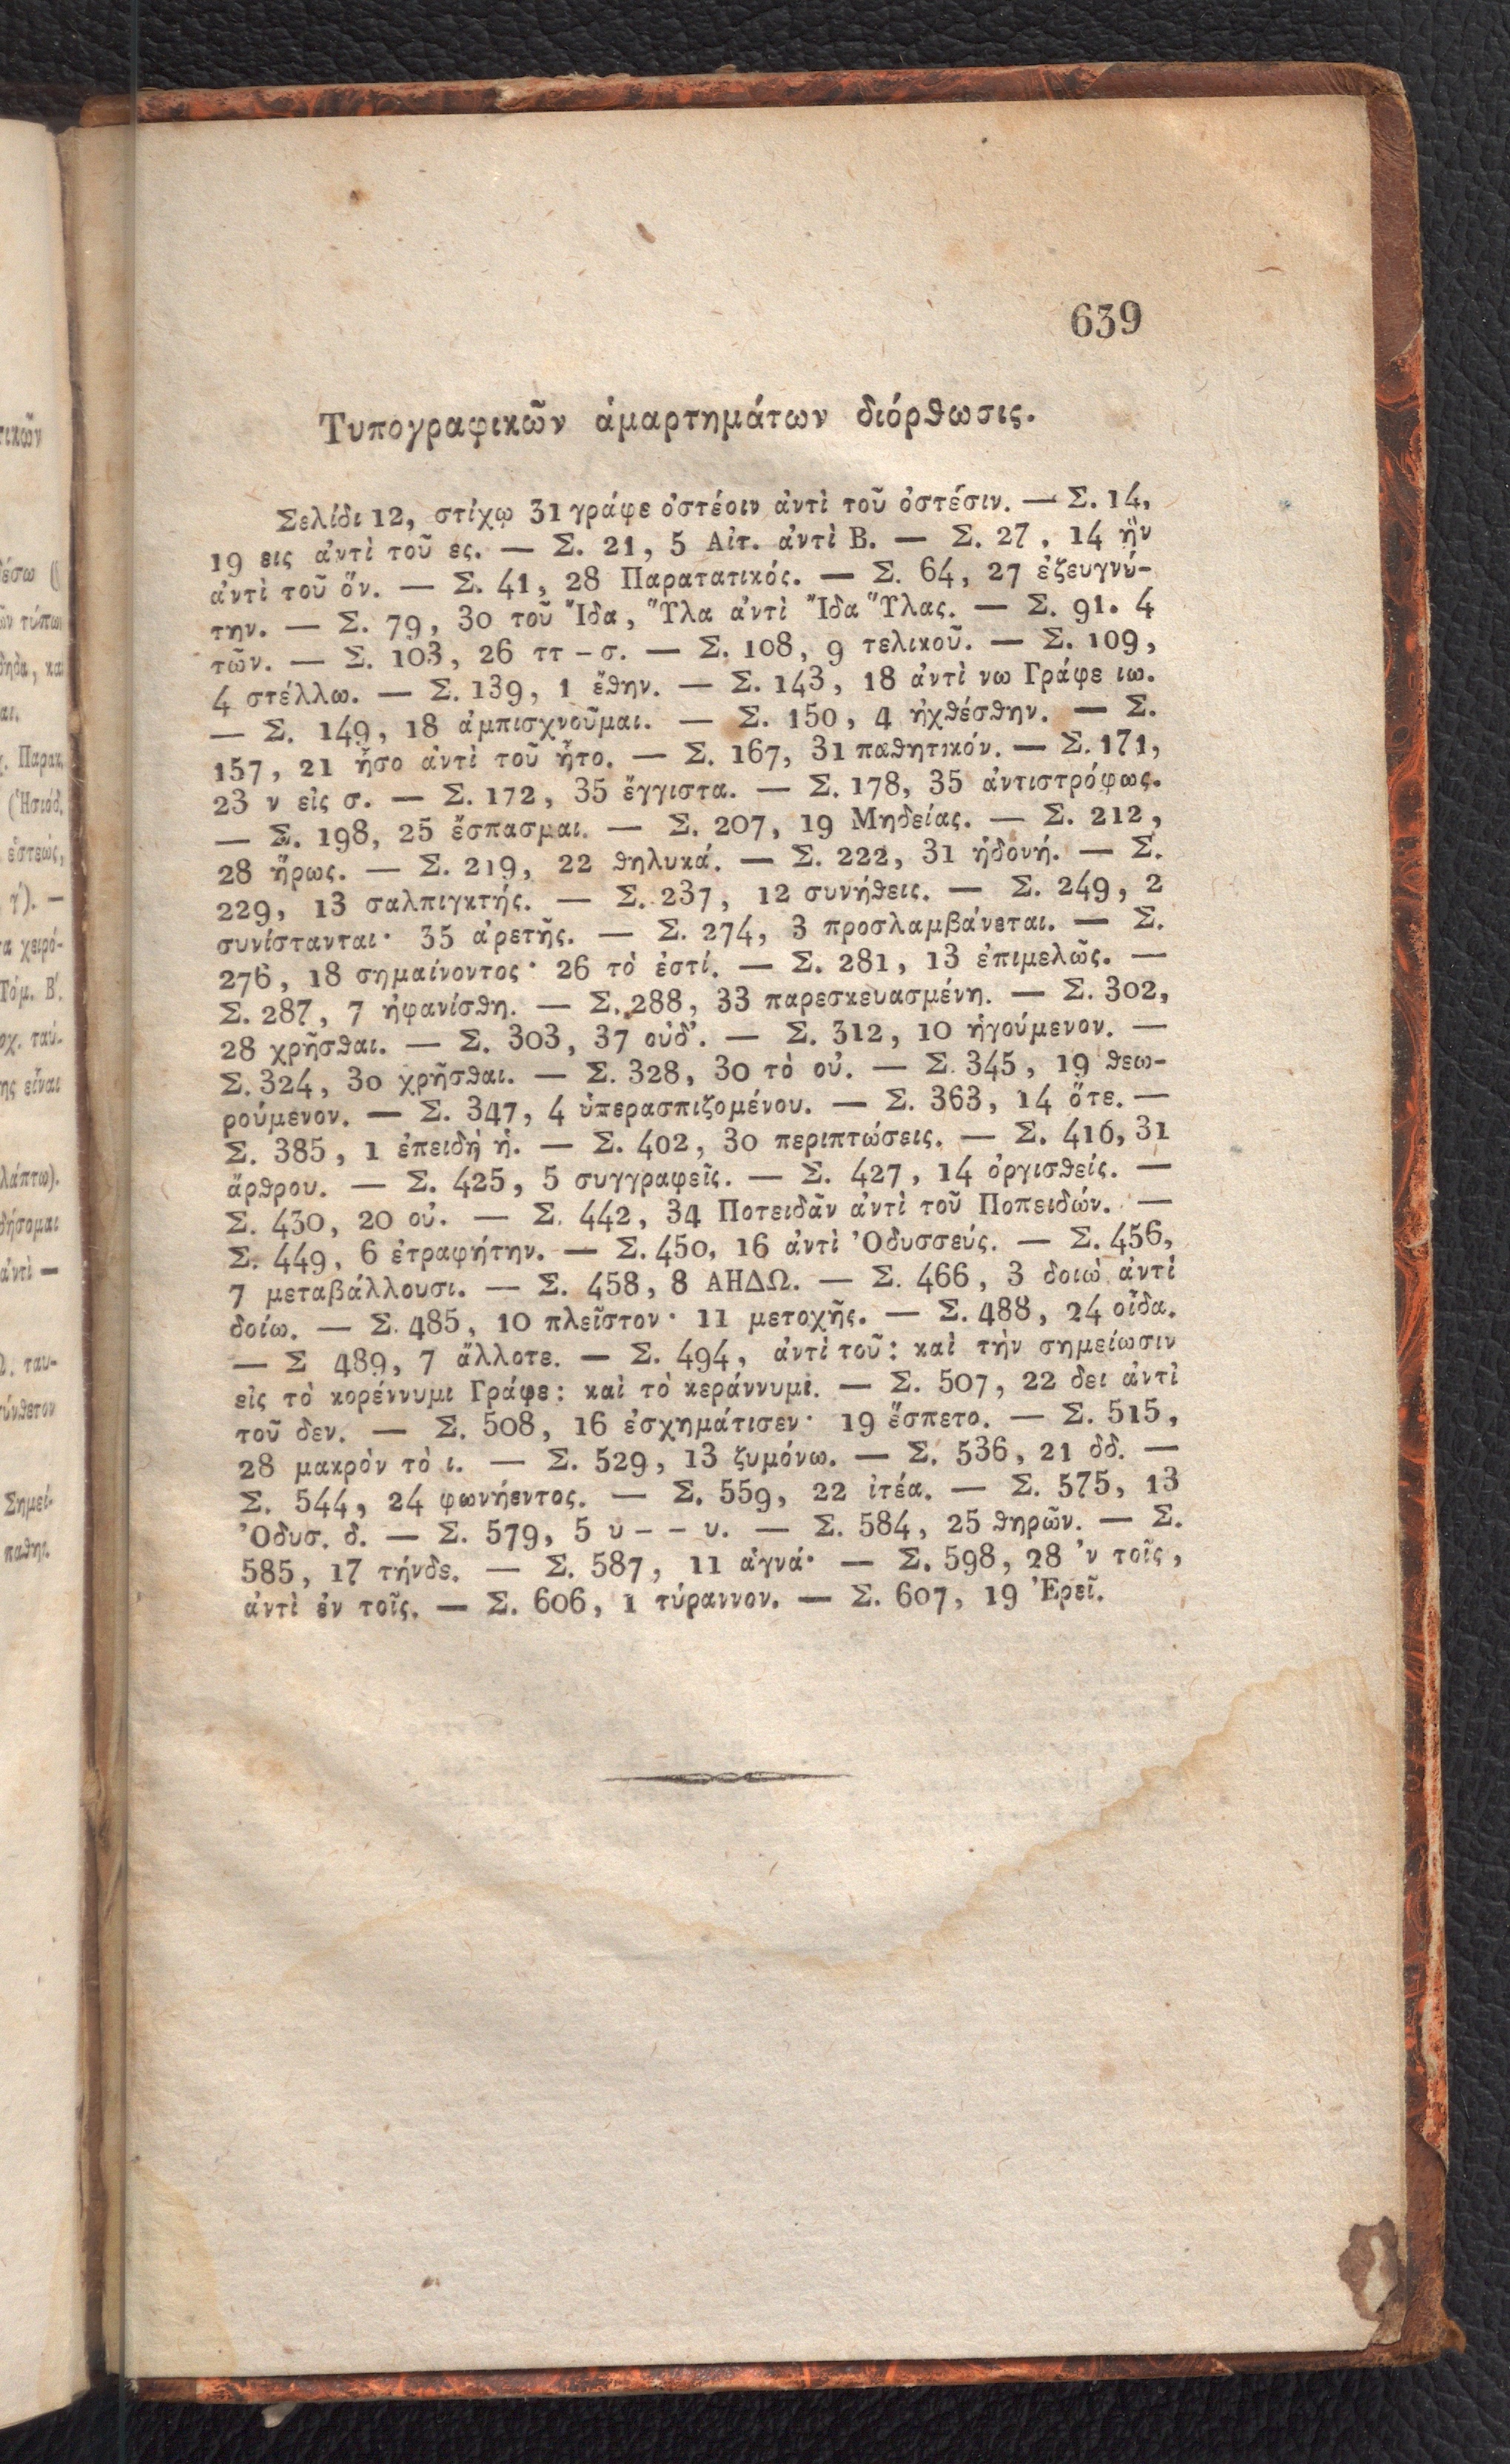 639
Τυπογραφικῶν ἁμαρτημάτων διόρθωσις.
Σελίδι 12, στίχῳ 31 γράφε ὀστέοιν ἀντὶ τοῦ ὀστέσιν. — Σ. 14,
19 εις ἀντὶ τοῦ ες. — Σ. 21, 5 Αἰτ. ἀντὶ Β. — Σ. 27, 14 ἣν
ἀντὶ τοῦ ὅν. — Σ. 41, 28 Παρατατικός. — Σ. 64, 27 ἐζευγνύ-
την. — Σ. 79, 30 τοῦ Ἴδα, Ὕλα ἀντὶ Ἴδα Ὕλας. — Σ. 91. 4
τῶν. — Σ. 103, 26 ττ – σ. — Σ. 108, 9 τελικοῦ. — Σ. 109,
4 στέλλω. — Σ. 139, 1 ἔθην. — Σ. 143, 18 ἀντὶ νω Γράφε ιω.
— Σ. 149, 18 ἀμπισχνοῦμαι. — Σ. 150, 4 ἠχθέσθην. — Σ.
157, 21 ἦσο ἀντὶ τοῦ ἦτο. — Σ. 167, 31 παθητικόν. — Σ. 171,
23 ν εἰς σ. — Σ. 172, 35 ἔγγιστα. — Σ. 178, 35 ἀντιστρόφως.
— Σ. 198, 25 ἔσπασμαι. — Σ. 207, 19 Μηδείας. — Σ. 212,
28 ἥρως. — Σ. 219, 22 θηλυκά. — Σ. 222, 31 ἡδονή. — Σ.
229, 13 σαλπιγκτής. — Σ. 237, 12 συνήθεις. — Σ. 249, 2
συνίστανται· 35 ἀρετῆς. — Σ. 274, 3 προσλαμβάνεται. — Σ.
276, 18 σημαίνοντος· 26 τὸ ἐστί. — Σ. 281, 13 ἐπιμελῶς. —
Σ. 287, 7 ἠφανίσθη. — Σ. 288, 33 παρεσκευασμένη. — Σ. 302,
28 χρῆσθαι. — Σ. 303, 37 οὐδ'. — Σ. 312, 10 ἡγούμενον. —
Σ. 324, 30 χρῆσθαι. — Σ. 328, 30 τὸ οὐ. — Σ. 345, 19 θεω-
ρούμενον. — Σ. 347, 4 ὑπερασπιζομένου. — Σ. 363, 14 ὅτε. —
Σ. 385, 1 ἐπειδὴ ἡ. — Σ. 402, 30 περιπτώσεις. — Σ. 416, 31
ἄρθρου. — Σ. 425, 5 συγγραφεῖς. — Σ. 427, 14 ὀργισθείς. —
Σ. 430, 20 οὐ. — Σ. 442, 34 Ποτειδᾶν ἀντὶ τοῦ Ποπειδών. —
Σ. 449, 6 ἐτραφήτην. — Σ. 450, 16 ἀντὶ Ὀδυσσεύς. — Σ. 456,
7 μεταβάλλουσι. — Σ. 458, 8 ΑΗΔΩ. — Σ. 466, 3 δοιὼ ἀντὶ
δοίω. — Σ. 485, 10 πλεῖστον· 11 μετοχῆς. — Σ. 488, 24 οἶδα.
— Σ 489, 7 ἄλλοτε. — Σ. 494, ἀντὶ τοῦ: καὶ τὴν σημείωσιν
εἰς τὸ κορέννυμι Γράφε: καὶ τὸ κεράννυμι. — Σ. 507, 22 δει ἀντὶ
τοῦ δεν. — Σ. 508, 16 ἐσχημάτισεν· 19 ἕσπετο. — Σ. 515,
28 μακρὸν τὸ ι. — Σ. 529, 13 ζυμόνω. — Σ. 536, 21 δδ. —
Σ. 544, 24 φωνήεντος. — Σ. 559, 22 ἰτέα. — Σ. 575, 13
Ὀδυσ. δ. — Σ. 579, 5 υ – – υ. — Σ. 584, 25 θηρῶν. — Σ.
585, 17 τήνδε. — Σ. 587, 11 ἁγνά· — Σ. 598, 28 'ν τοῖς,
ἀντὶ ἐν τοῖς. — Σ. 606, 1 τύραννον. — Σ. 607, 19 Ἐρεῖ.